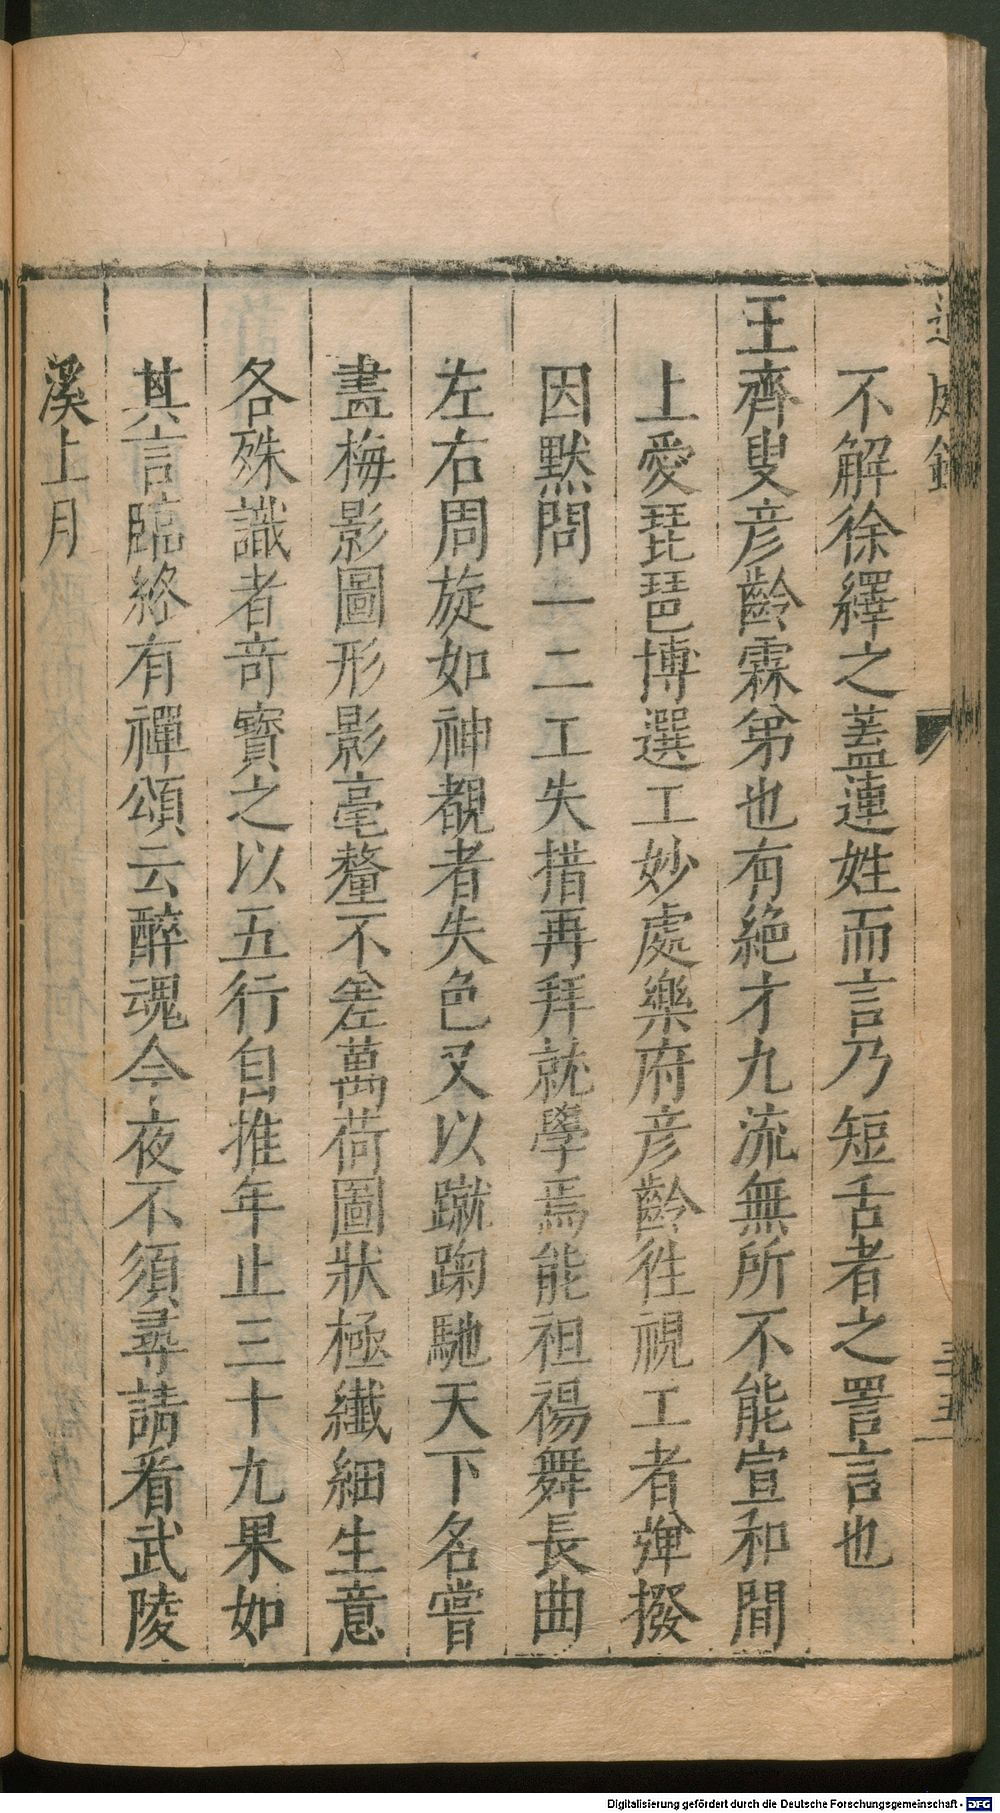 不解徐繹之蓋蓮姓而言乃短舌者之詈言也
王齊叟彦齡霖弟也有絶才九流無所不能宣和間
上愛琵琶博選工妙處樂府彦齡徃視工者彈撥
因黙問一二工失措再拜就學焉能袒裼舞長曲
左右周旋如神覩者失色又以蹴踘馳天下名嘗
畫梅影圖形影毫釐不差萬荷圖狀極纖細生意
各殊識者竒寳之以五行自推年止三十九果如
其言臨終有禪頌云醉魂今夜不須尋請看武陵
溪上月
Digitalisierung gefördert durch die Deutsche Forschungsgemeinschaft - DFG